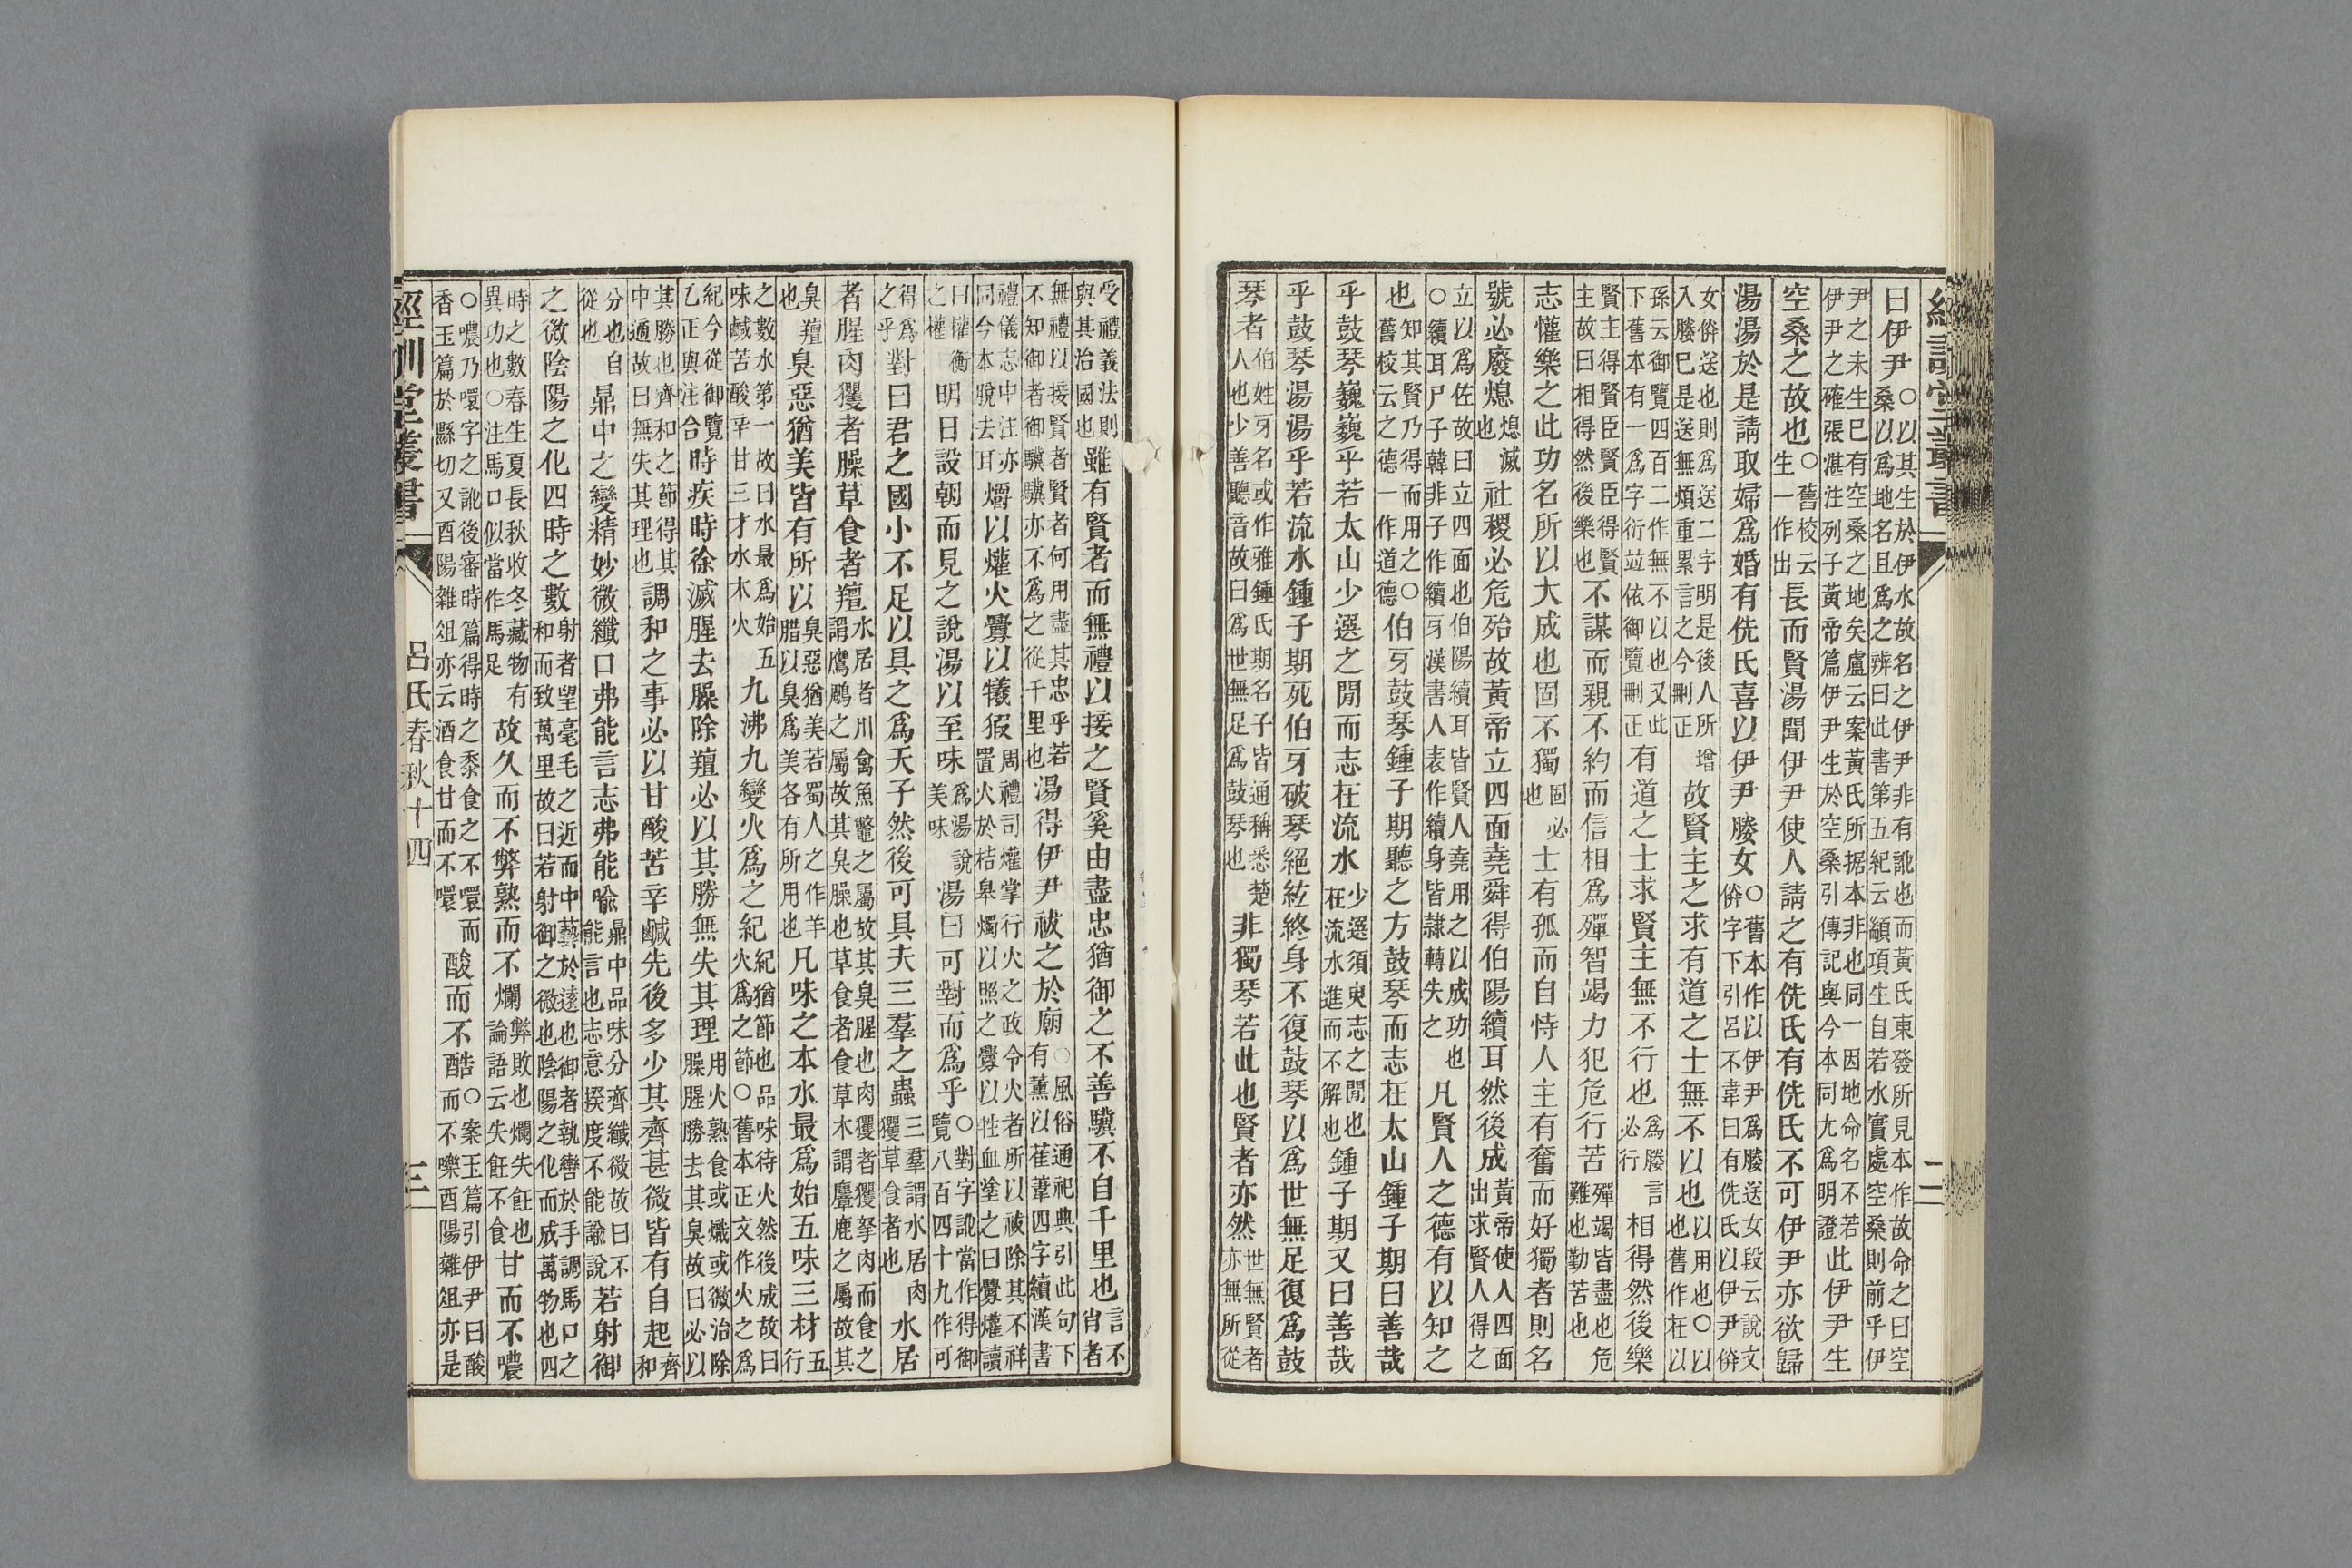 曰伊尹○以其生於伊水故名之伊尹非有訛也而黃氏東發所見本作故命之曰空桑以爲地名且爲之辨曰此書第五紀云顓頊生自若水實處空桑則前乎伊
尹之未生已有空桑之地矣盧云案黃氏所据本非也同一因地命名不若伊尹之確張湛注列子黃帝篇伊尹生於空桑引傳記與今本同尤爲明證此伊尹生
空桑之故也○舊校云生一作出長而賢湯聞伊尹使人請之有侁氏有侁氏不可伊尹亦欲歸
湯湯於是請取婦爲婚有侁氏喜以伊尹媵女○舊本作以伊尹爲媵送女段云說文㑞字下引呂不韋曰有侁氏以伊尹㑞
女㑞送也則爲送二字明是後人所增入媵已是送無煩重累言之今刪正故賢主之求有道之士無不以也以用也○以也舊作在以
孫云御覽四百二作無不以也又此下舊本有一爲字衍竝依御覽刪正有道之士求賢主無不行也爲媵言必行相得然後樂
賢主得賢臣賢臣得賢主故曰相得然後樂也不謀而親不約而信相爲殫智竭力犯危行苦殫竭皆盡也危難也勤苦也
志懽樂之此功名所以大成也固不獨固必也士有孤而自恃人主有奮而好獨者則名
號必廢熄熄滅也社稷必危殆故黃帝立四面堯舜得伯陽續耳然後成黃帝使人四面出求賢人得之
立以爲佐故曰立四面也伯陽續耳皆賢人堯用之以成功也○續耳尸子韓非子作續牙漢書人表作續身皆隸轉失之凡賢人之德有以知之
也知其賢乃得而用之○舊校云之德一作道德伯牙鼓琴鍾子期聽之方鼓琴而志在太山鍾子期曰善哉
乎鼓琴巍巍乎若太山少選之閒而志在流水少選須臾志之閒也在流水進而不解也鍾子期又曰善哉
乎鼓琴湯湯乎若流水鍾子期死伯牙破琴絕絃終身不復鼓琴以爲世無足復爲鼓
琴者伯姓牙名或作雅鍾氏期名子皆通稱悉楚人也少善聽音故曰爲世無足爲鼓琴也非獨琴若此也賢者亦然世無賢者亦無所從
二
受禮義法則與其治國也雖有賢者而無禮以接之賢奚由盡忠猶御之不善驥不自千里也言不肖者
無禮以接賢者賢者何用盡其忠乎若不知御者御驥驥亦不爲之從千里也湯得伊尹祓之於廟○風俗通祀典引此句下有薰以萑葦四字續漢書
禮儀志中注亦同今本脫去耳爝以爟火釁以犧猳周禮司爟掌行火之政令火者所以祓除其不祥置火於桔皋燭以照之釁以牲血塗之曰釁爟讀
曰權衡之權明日設朝而見之說湯以至味爲湯說美味湯曰可對而爲乎○對字訛當作得御覽八百四十九作可
得爲之乎對曰君之國小不足以具之爲天子然後可具夫三羣之蟲三羣謂水居肉玃草食者也水居
者腥肉玃者臊草食者羶水居者川禽魚鼈之屬故其臭腥也肉玃者玃拏肉而食之謂鷹鵰之屬故其臭臊也草食者食草木謂麞鹿之屬故其
臭羶也臭惡猶美皆有所以臭惡猶美若蜀人之作羊腊以臭爲美各有所用也凡味之本水最爲始五味三材五行
之數水第一故曰水最爲始五味鹹苦酸辛甘三才水木火九沸九變火爲之紀紀猶節也品味待火然後成故曰火爲之節○舊本正文作火之爲
紀今從御覽乙正與注合時疾時徐滅腥去臊除羶必以其勝無失其理用火熟食或熾或微治除臊腥勝去其臭故曰必以
其勝也齊和之節得其中適故曰無失其理也調和之事必以甘酸苦辛鹹先後多少其齊甚微皆有自起齊和
分也自從也鼎中之變精妙微纖口弗能言志弗能喻鼎中品味分齊纖微故曰不能言也志意揆度不能諭說若射御
之微陰陽之化四時之數射者望毫毛之近而中藝於遠也御者執轡於手調馬口之和而致萬里故曰若射御之微也陰陽之化而成萬物也四
時之數春生夏長秋收冬藏物有異功也○注馬口似當作馬足故久而不弊熟而不爛弊敗也爛失飪也論語云失飪不食甘而不噥
○噥乃㘣字之訛後審時篇得時之黍食之不㘣而香玉篇於縣切又酉陽雜俎亦云酒食甘而不㘣酸而不酷○案玉篇引伊尹曰酸而不嚛酉陽雜俎亦是
經訓堂叢書
呂氏春秋十四
三